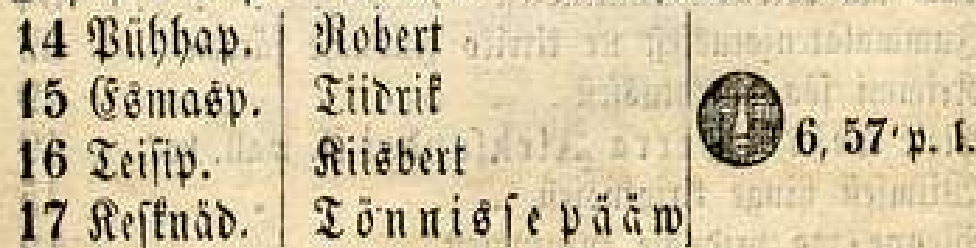 14 Pühhap. Robert
15 Esmasp. Tiidrik
16 Teisip. Kiisbert 6, 57' p. l.
17 Keſknäd. Tönnisſe pääw